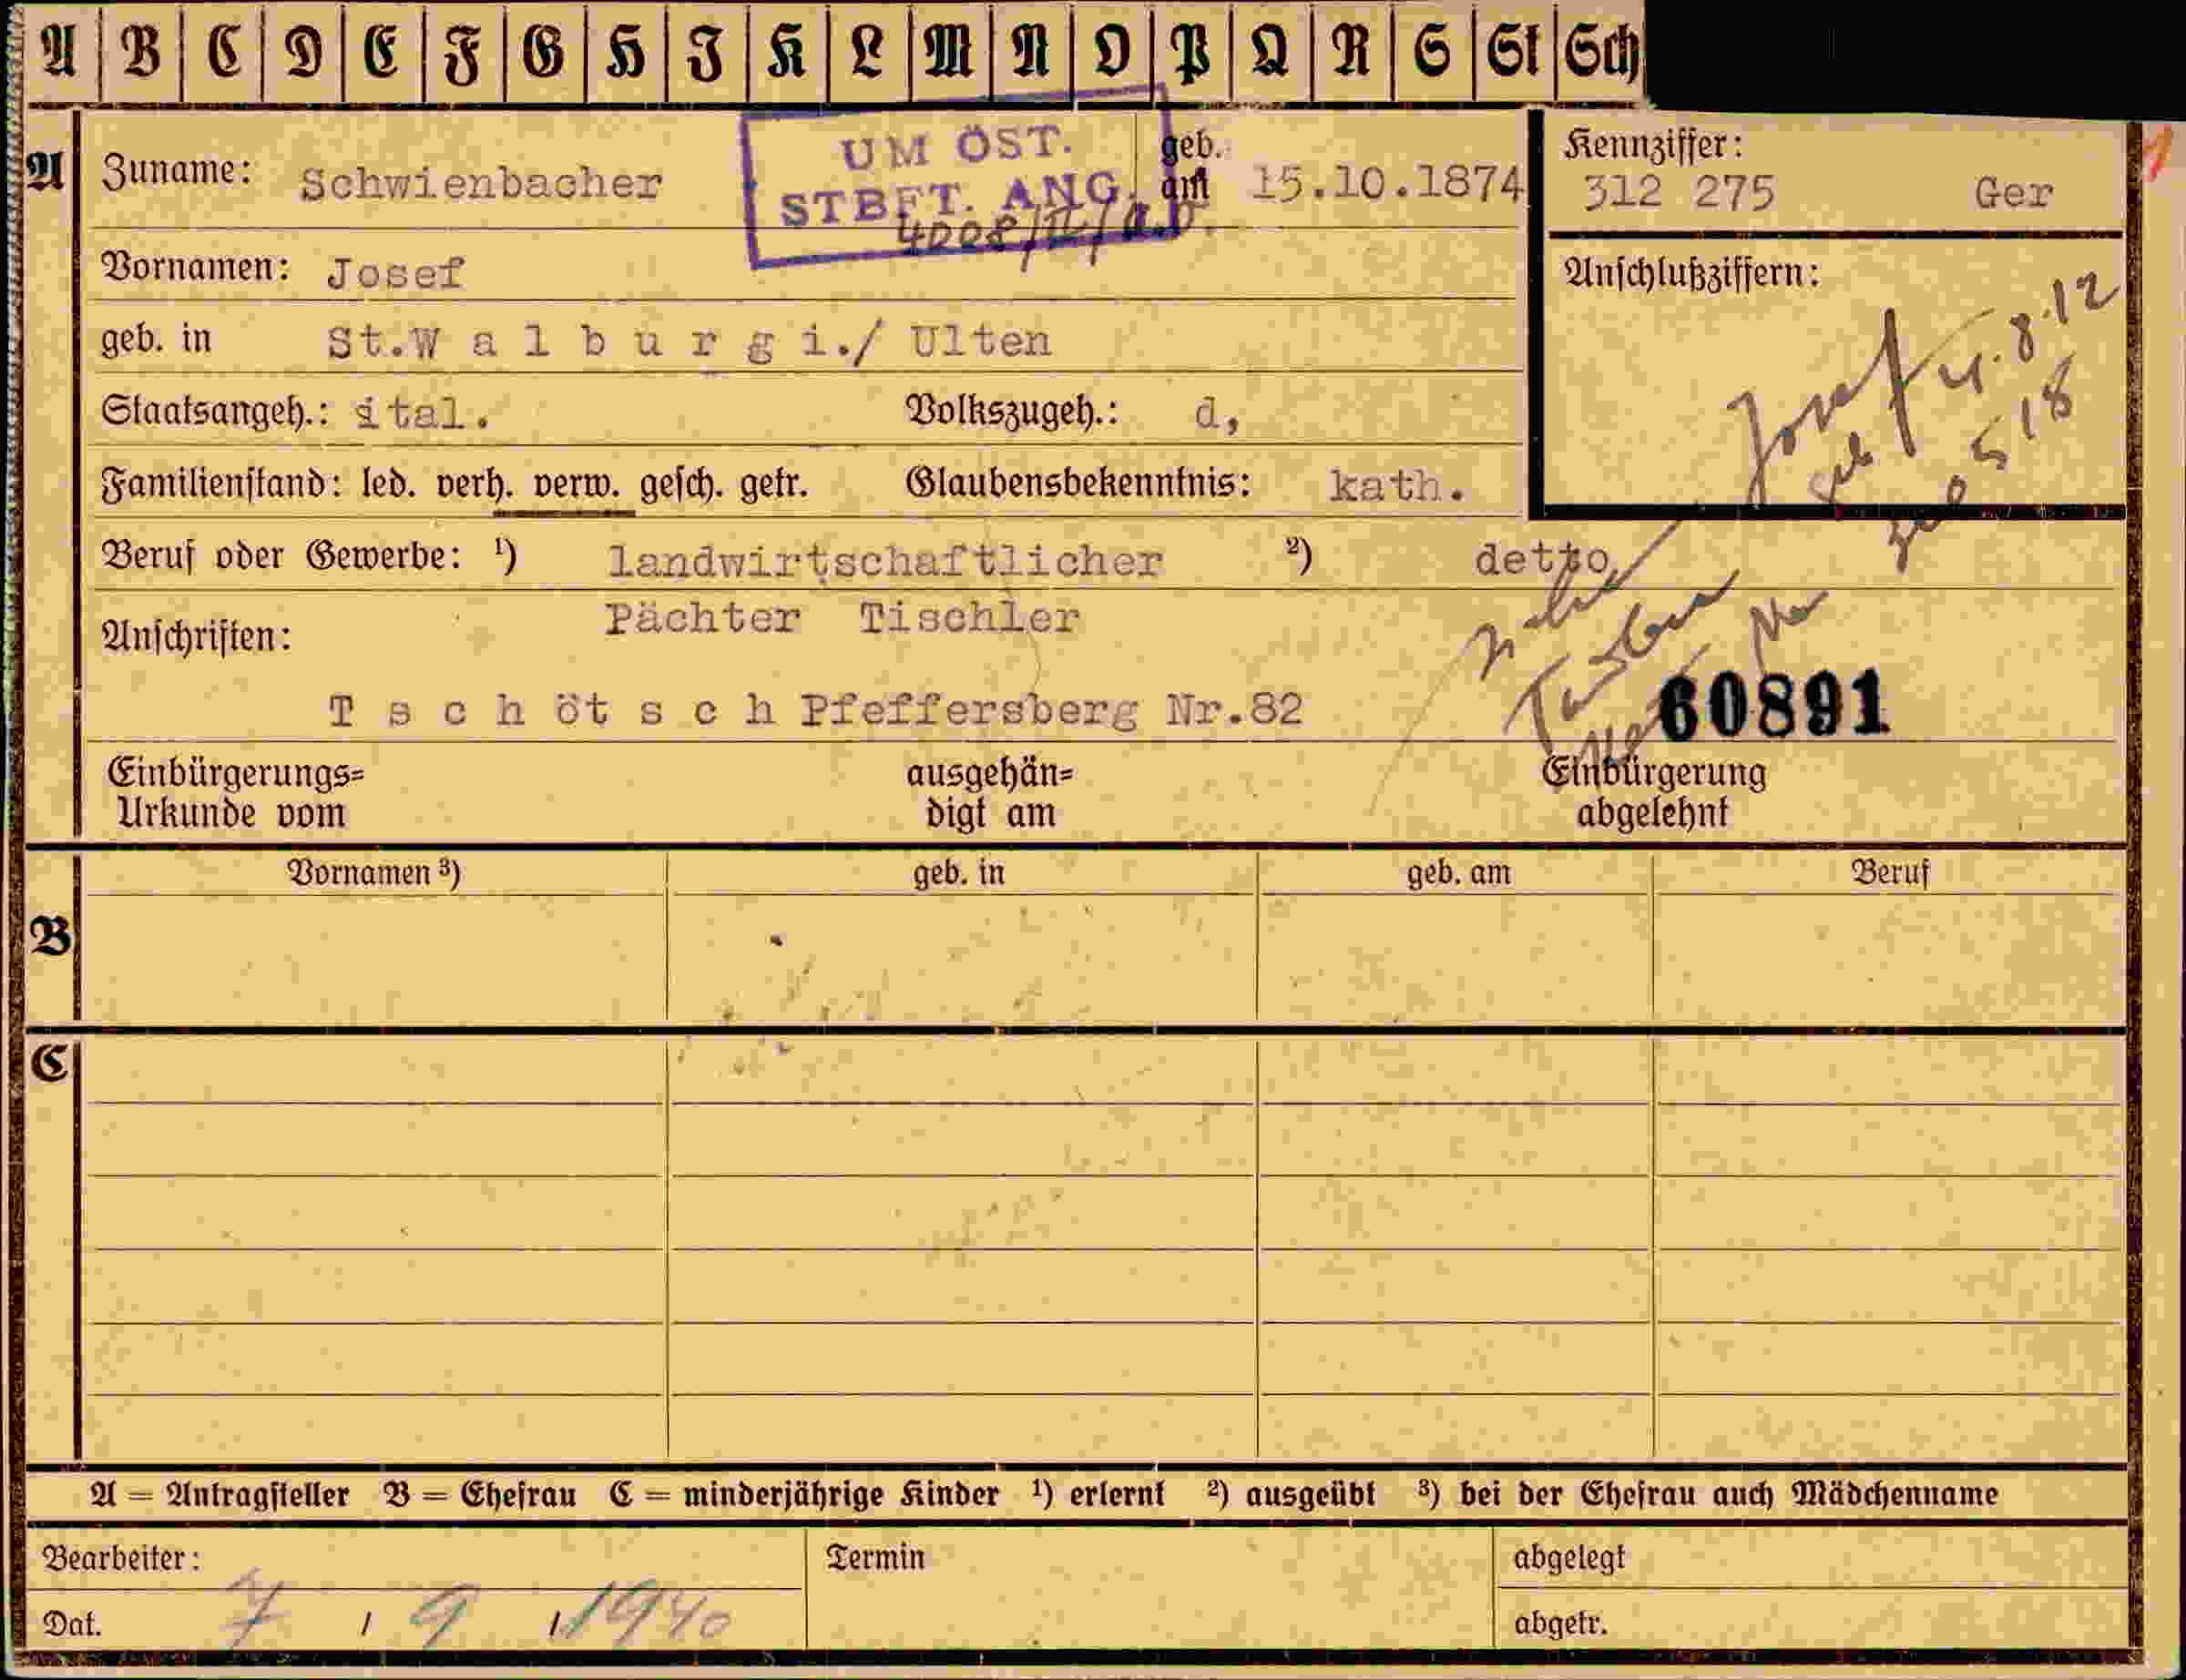 A B C D E F G H I K L M N O P Q R S St Sch
A Zuname: Schwienbacher geb. am 15.10.1874
UM ÖST.
STBFT. ANG.
Kennziffer:
312 275 Ger
Vornamen: Josef
Anschlußziffern:
geb. in St.W a l b u r g i./ Ulten
Josef
geb 4.8.12
518
Staatsangeh.: ital. Volkszugeh.: d,
Familienstand: led. verh. verw. gesch. getr. Glaubensbekenntnis: kath.
Beruf oder Gewerbe: ¹) landwirtschaftlicher ²) detto
Pächter Tischler
Anschriften:
T s c h öt s c h Pfeffersberg Nr.82
60891
Einbürgerungs=
Urkunde vom
ausgehän=
digt am
Einbürgerung
abgelehnt
Vornamen ³) geb. in geb. am Beruf
B
C
A = Antragsteller B = Ehefrau C = minderjährige Kinder ¹) erlernt ²) ausgeübt ³) bei der Ehefrau auch Mädchenname
Bearbeiter: Termin abgelegt
Dat. 7 / 9 / 1940 abgetr.